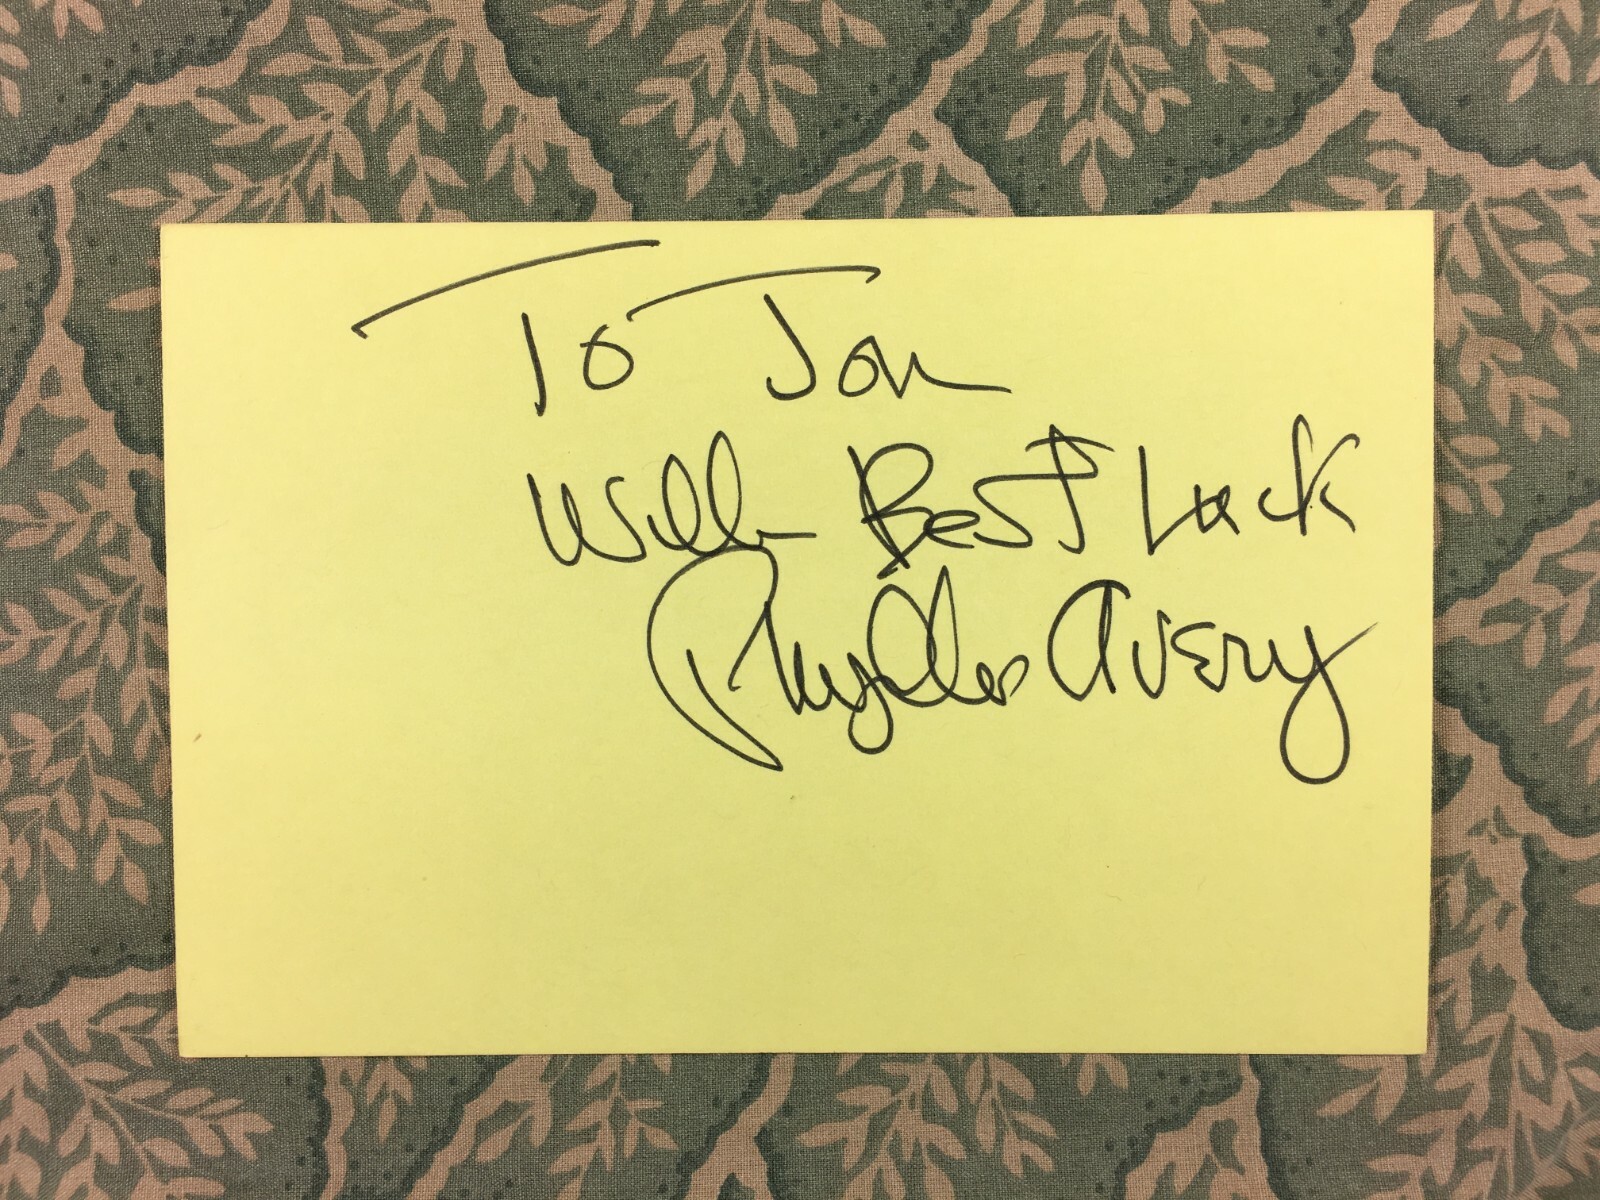 To Jon
With Best Luck
Phyllis Avery